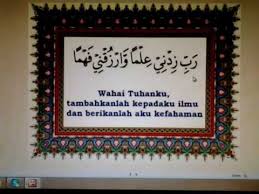 رَبِّ زِدْنِيْ عِلْمًا وَارْزُقْنِيْ فَهْمًا
Wahai Tuhanku,
tambahkanlah kepadaku ilmu
dan berikanlah aku kefahaman